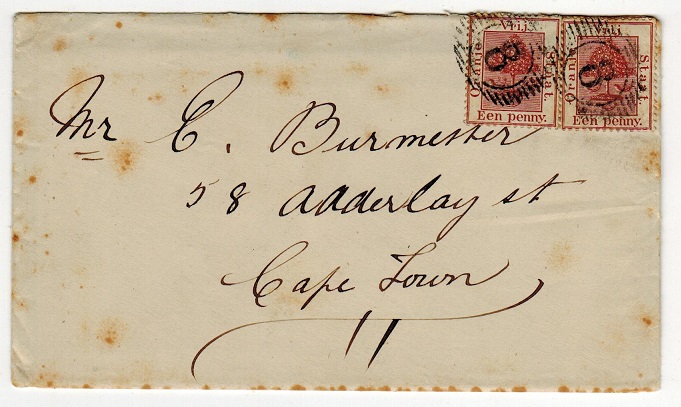 Oranje Vrij Staat. Een penny.
Oranje Staat. Een penny.
8
8
Mr C. Burmester
58 Adderlay st
Cape Town